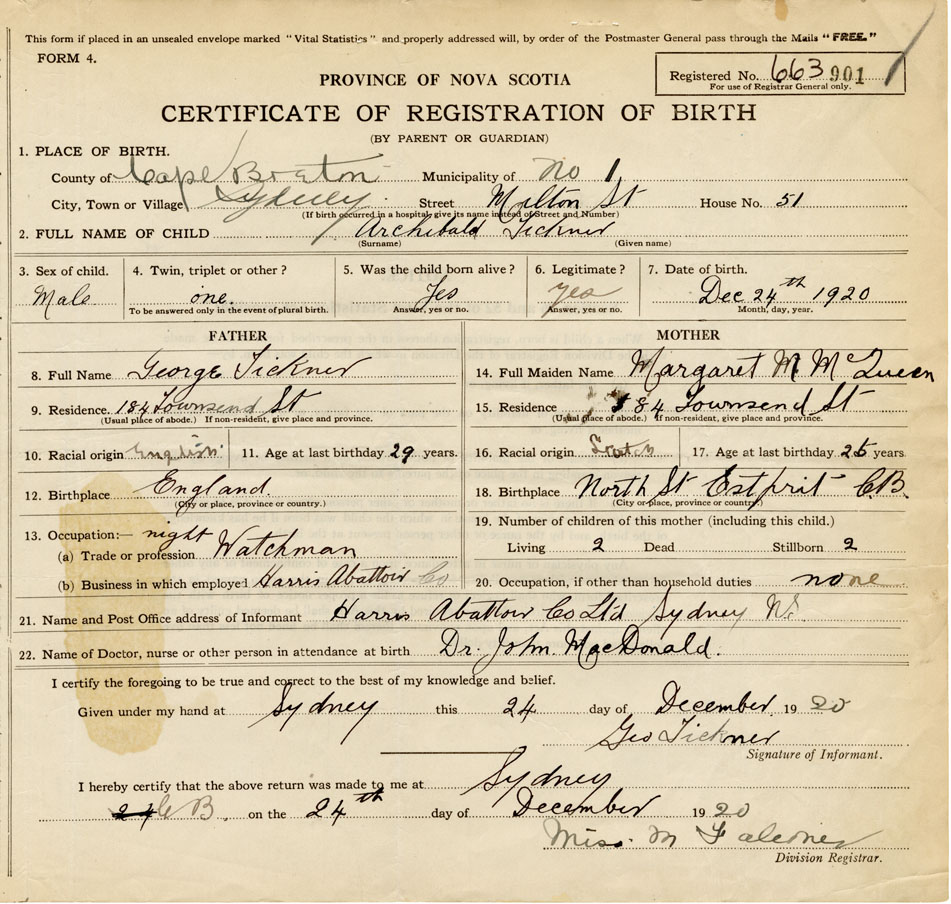 This form if placed in an unsealed envelope marked "Vital Statistics" and properly addressed will, by order of the Postmaster General pass through the Mails "FREE."
FORM 4.
PROVINCE OF NOVA SCOTIA
Registered No. 663 901
For use of Registrar General only.
CERTIFICATE OF REGISTRATION OF BIRTH
(BY PARENT OR GUARDIAN)
1. PLACE OF BIRTH.
County of Cape Breton Municipality of No 1
City, Town or Village Sydney Street Milton St House No. 51
(If birth occurred in a hospital, give its name instead of Street and Number)
2. FULL NAME OF CHILD Archibald Tickner
(Surname) (Given name)
3. Sex of child. 4. Twin, triplet or other? 5. Was the child born alive? 6. Legitimate? 7. Date of birth.
Male one. Yes yes Dec 24th 1920
To be answered only in the event of plural birth. Answer, yes or no. Answer, yes or no. Month, day, year.
FATHER
8. Full Name George Tickner
9. Residence. 184 Townsend St
(Usual place of abode.) If non-resident, give place and province.
10. Racial origin English 11. Age at last birthday 29 years.
12. Birthplace England.
(City or place, province or country.)
13. Occupation:— night
(a) Trade or profession Watchman
(b) Business in which employed Harris Abattoir Co
MOTHER
14. Full Maiden Name Margaret M McQueen
15. Residence 84 Townsend St
(Usual place of abode.) If non-resident, give place and province.
16. Racial origin Scotch 17. Age at last birthday 25 years.
18. Birthplace North St Estprit C.B.
(City or place, province or country.)
19. Number of children of this mother (including this child.)
Living 2 Dead Stillborn 2
20. Occupation, if other than household duties none
21. Name and Post Office address of Informant Harris Abattoir Co Ltd Sydney N.S.
22. Name of Doctor, nurse or other person in attendance at birth Dr. John MacDonald.
I certify the foregoing to be true and correct to the best of my knowledge and belief.
Given under my hand at Sydney this 24 day of December 1920
Geo Tickner
Signature of Informant.
I hereby certify that the above return was made to me at Sydney
24 C B. on the 24th day of December 1920
Miss. M Falconer
Division Registrar.